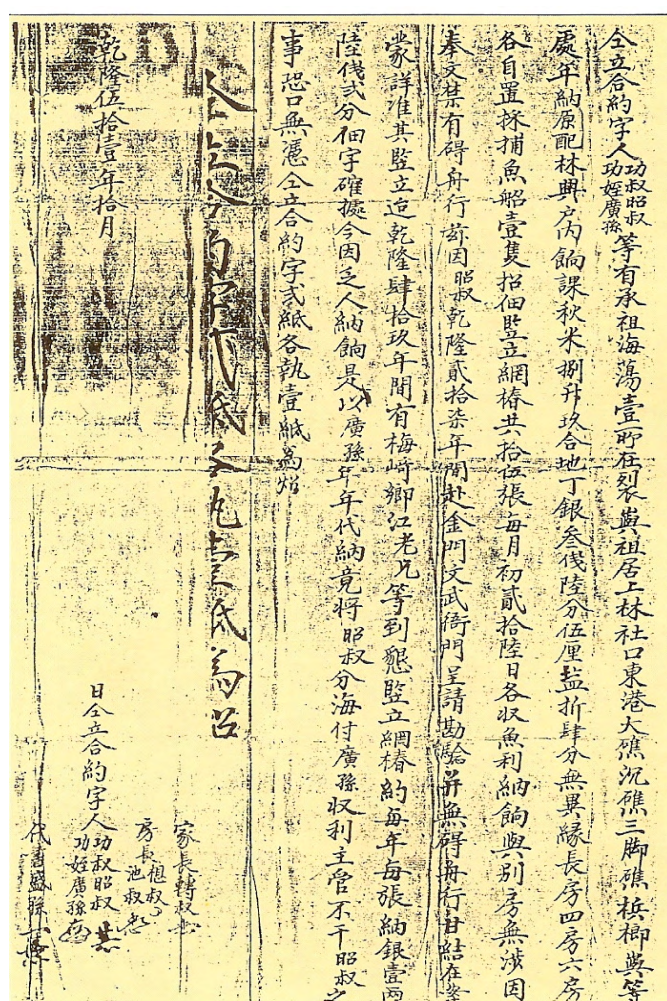 仝立合約字人功叔昭叔功姪廣孫等有承祖海蕩壹所在裂與祖居上林社口東港大礁沉礁三脚礁檳榔與等
處年納原配林興户内餉課秋米捌升玖合地丁銀叁錢陸分伍厘塩折肆分無異緣長房四房六房
各自置採捕魚船壹隻招佃竪立網樁共拾伍張每月初貳拾陸日各収魚利納餉與別房無涉因
奉文禁有碍舟行茲因昭叔乾隆貳拾柒年間赴金門文武衙門呈請勘驗并無碍舟行甘結在案
蒙詳准其竪立迨乾隆肆拾玖年間有梅𡶶鄉江老兄等到懇竪立網樁約每年每張納銀壹両
陸錢弍分佃字確據今因乏人納餉是以廣孫年年代納竟將昭叔分海付廣孫収利主管不干昭叔之
事恐口無憑仝立合約字弍紙各執壹紙為炤
仝立合約字弍紙各執壹紙為炤
家長轉叔
房長租叔池叔
乾隆伍拾壹年拾月 日仝立合約字人功叔昭叔功姪廣孫
代書盛孫